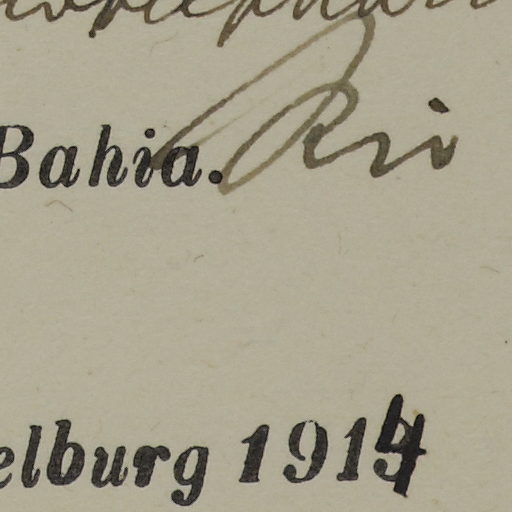 Bahia. Rio
elburg 1914